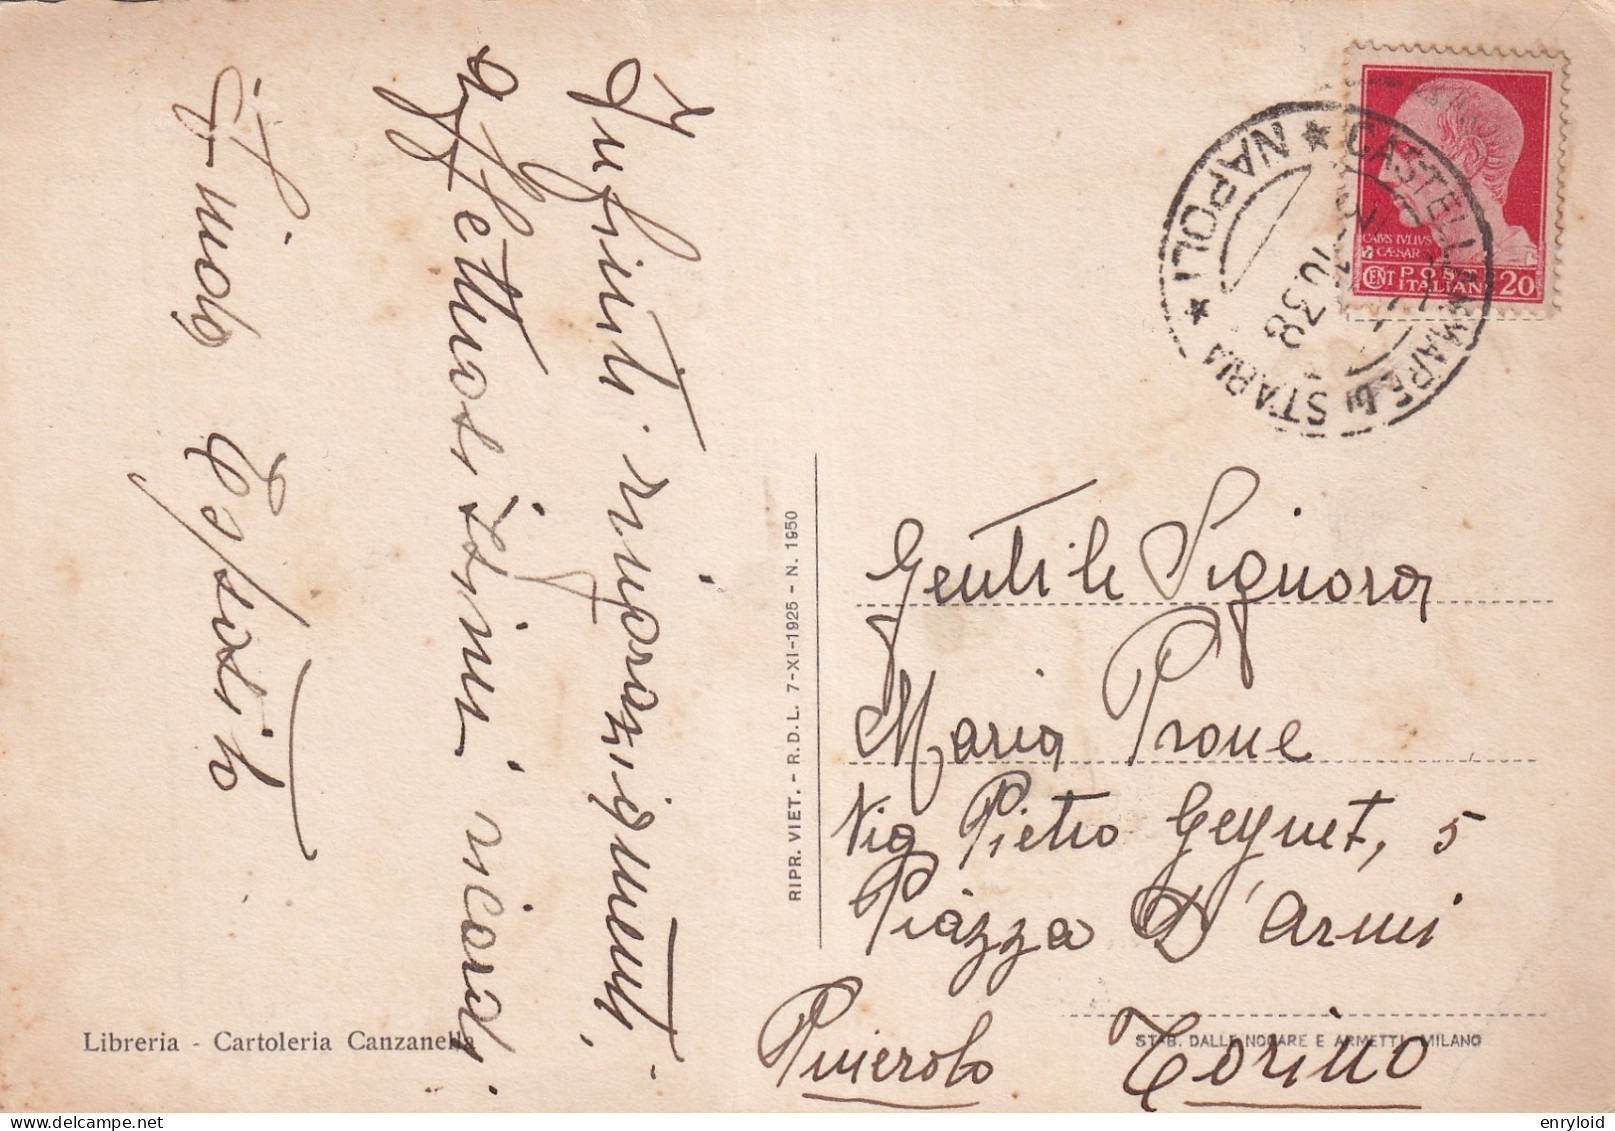 Infiniti ringraziamenti,
affettuosissimi ricordi
Esposito
Libreria - Cartoleria Canzanella
RIPR. VIET. - R.D.L. 7-XI-1925 - N. 1950
CASTELLAMMARE DI STABIA
★ NAPOLI ★
10.38
CAIVS IVLIVS
CAESAR
CENT POS ITALIAN 20
Gentile Signora
Maria Prone
Via Pietro Geymet, 5
Piazza D'Armi
Pinerolo Torino
STAB. DALLE NOGARE E ARMETTI - MILANO
enryloid